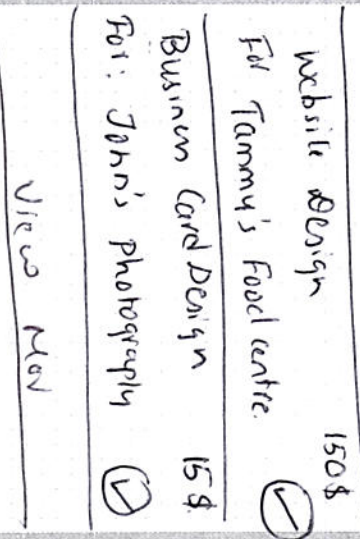 Website Design 150$
For Tammy's Food centre.
Business Card Design 15$
For: John's photography
View